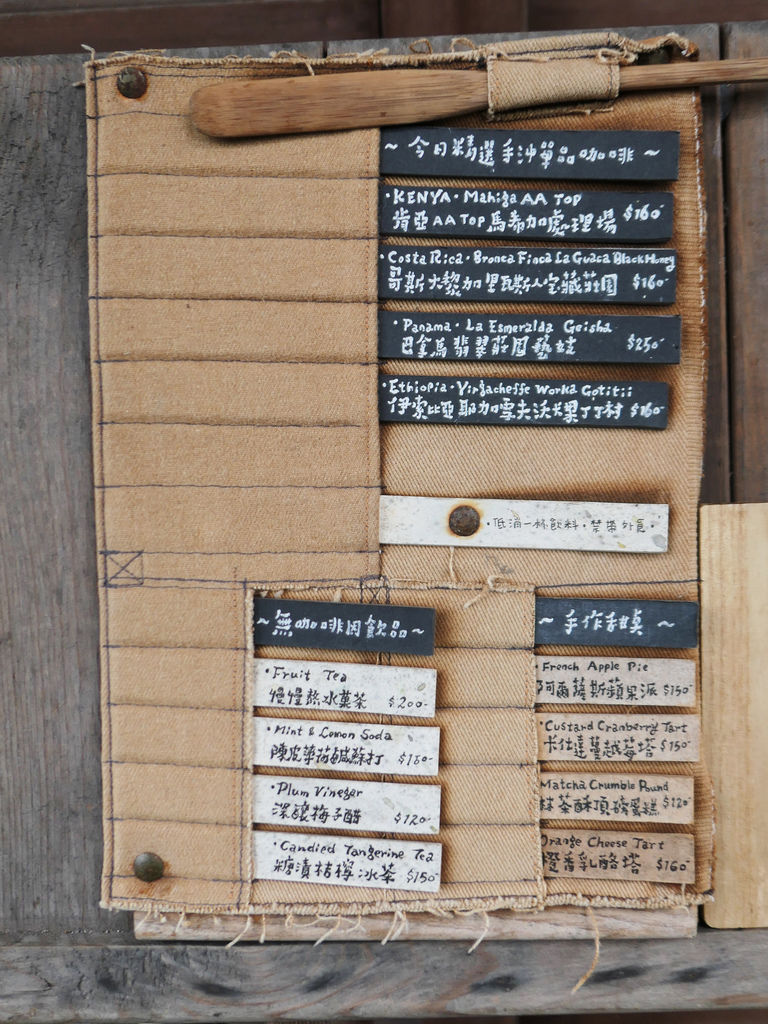 ~ 今日精選手沖單品咖啡 ~
·KENYA·Mahiga AA TOP
肯亞AA TOP馬希加處理場 $160-
·Costa Rica·Bronca Finca La Guaca Black Honey
哥斯大黎加里瓦斯人宝藏莊園 $160-
·Panama·La Esmeralda Geisha
巴拿馬翡翠莊園藝妓 $250-
·Ethiopia·Yirgacheffe Worka Gotitii
伊索比亞耶加雪夫沃卡果丁丁村 $160-
·低消一杯飲料·禁帶外食·
~無咖啡因飲品~
·Fruit Tea
慢慢熬冰菓茶 $200-
·Mint & Lemon Soda
陳皮薄荷鹹蘇打 $180-
·Plum Vinegar
深釀梅子醋 $120-
·Candied Tangerine Tea
糖漬桔檸冰茶 $150-
~手作甜點~
French Apple Pie
阿爾薩斯蘋果派 $150-
·Custard Cranberry Tart
卡仕達蔓越莓塔 $150-
Matcha Crumble Pound
抹茶酥頂磅蛋糕 $120-
Orange Cheese Tart
橙香乳酪塔 $160-